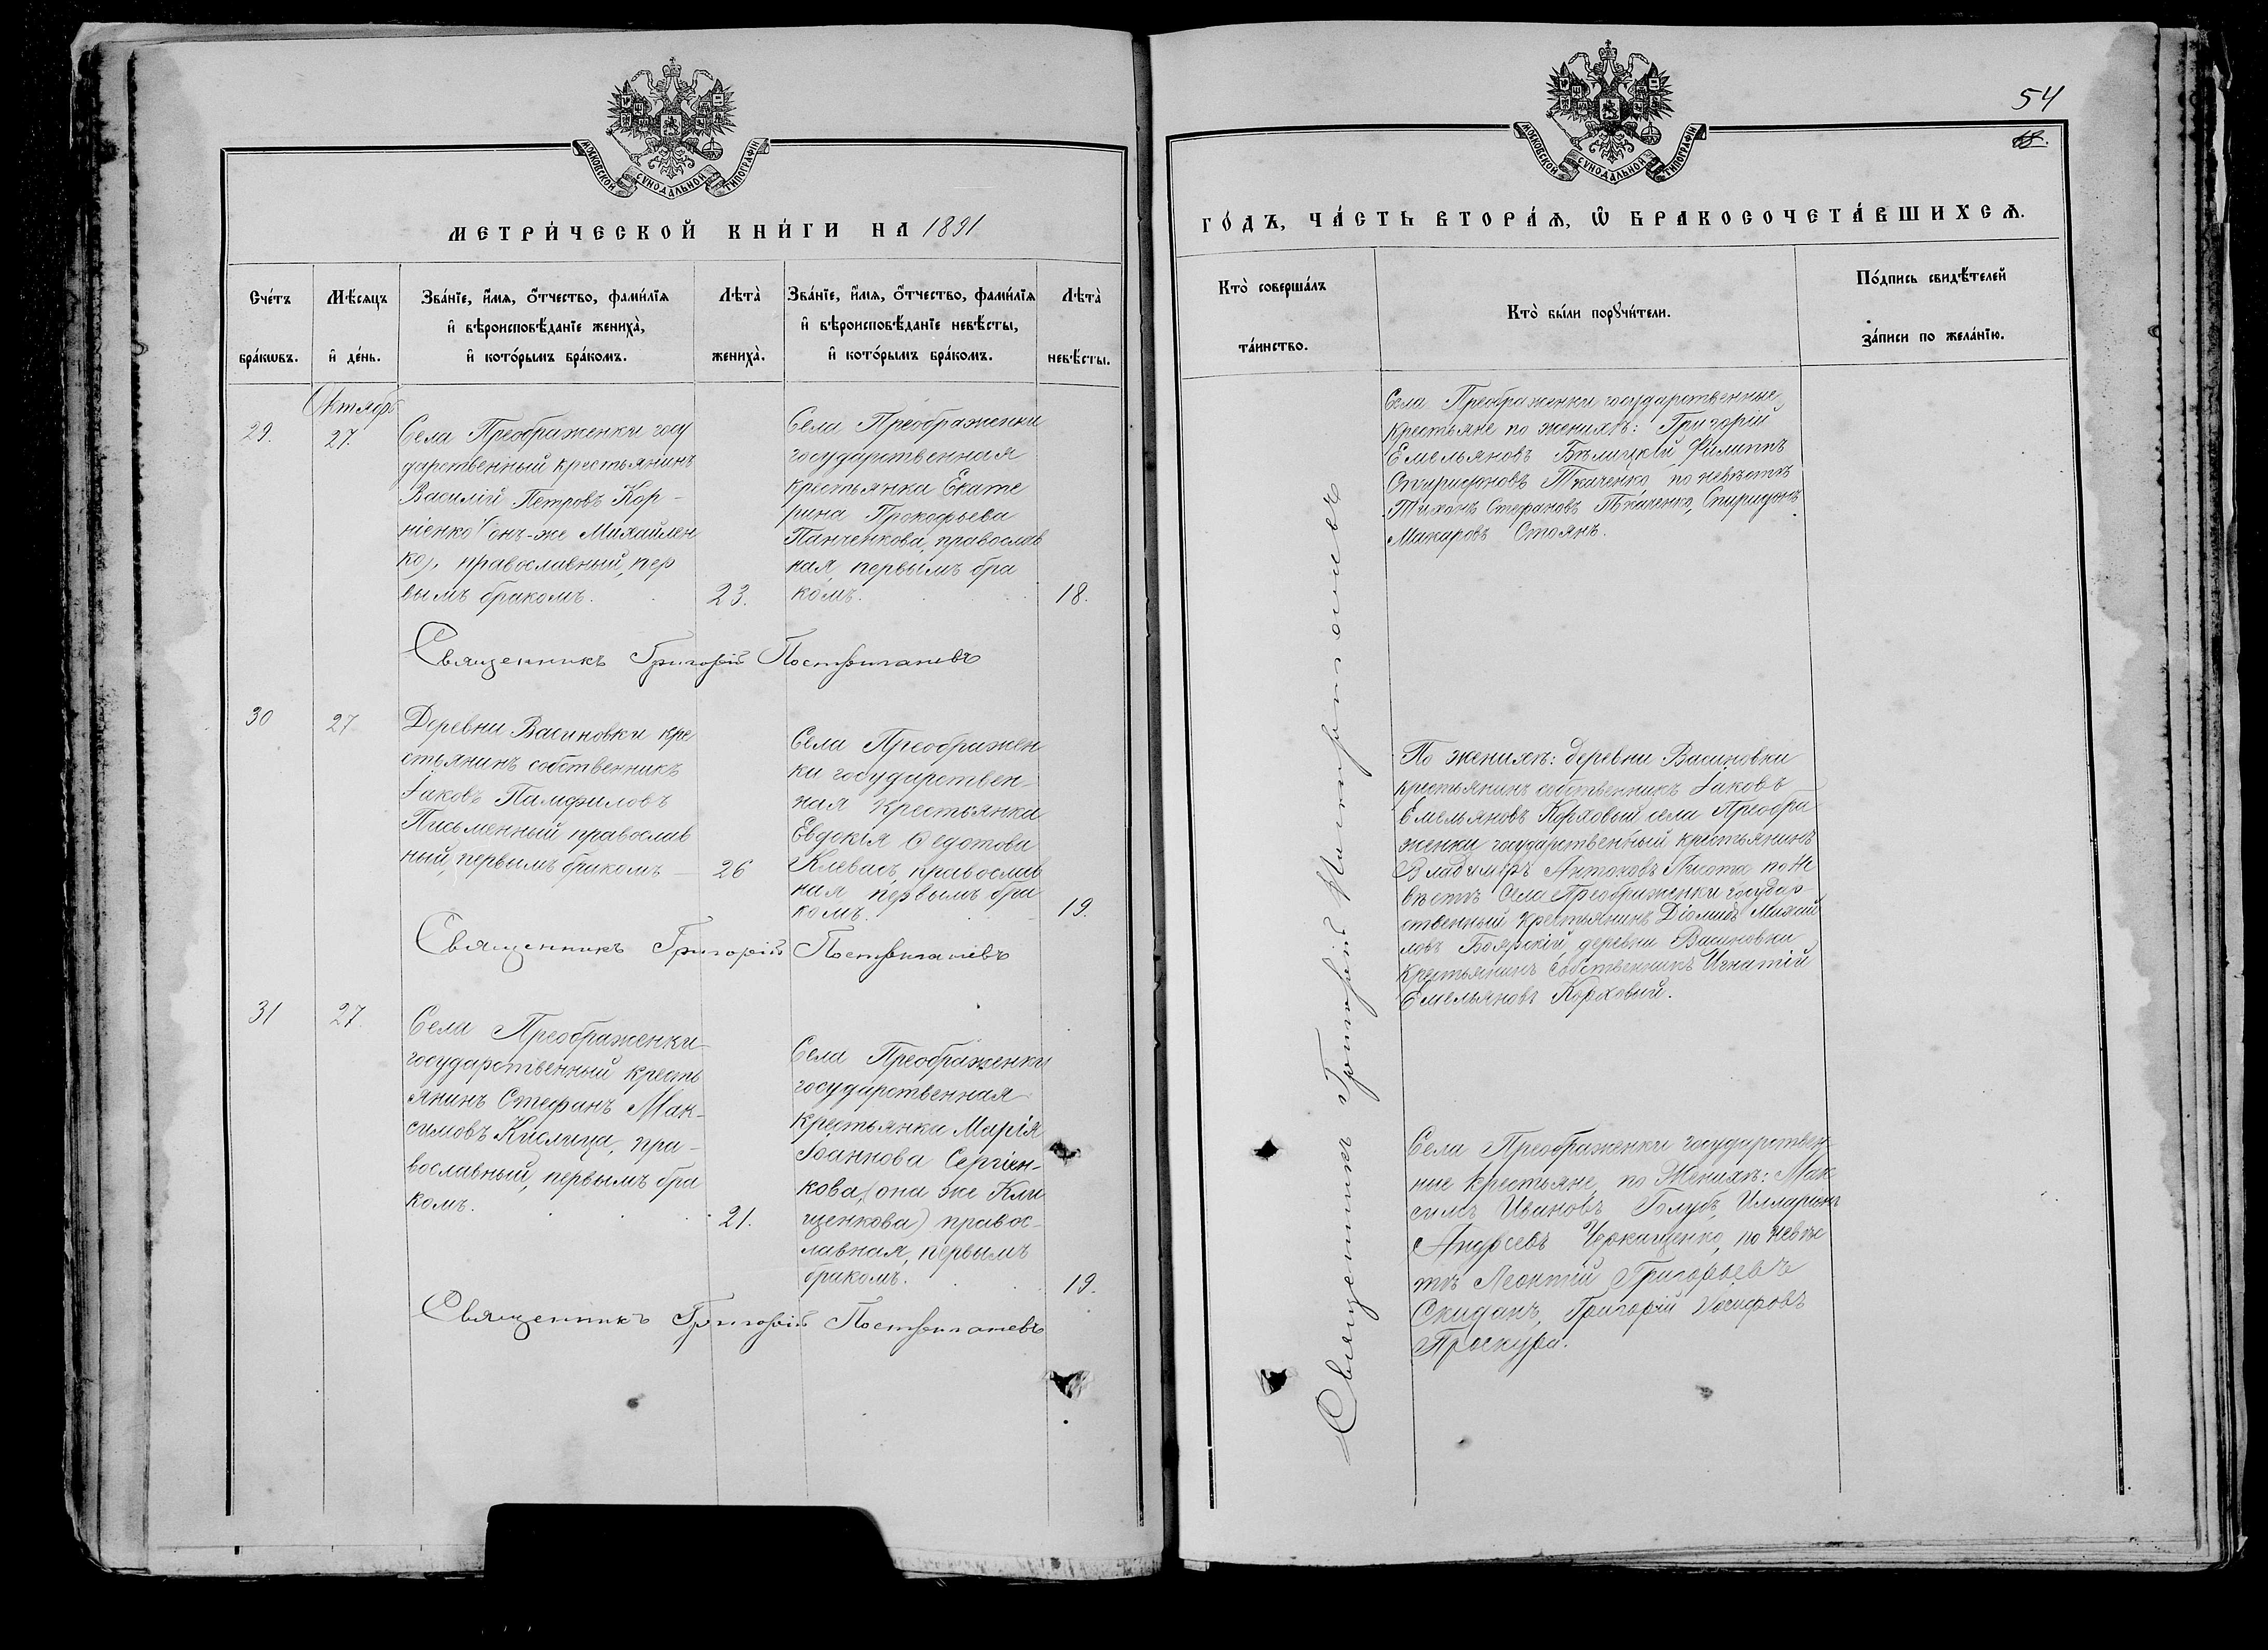 МОСКОВСКОЙ СѴНОДАЛЬНОЙ ТИПОГРАФІИ
МЕТРИ́ЧЕСКОЙ КНИ́ГИ НА 1891
Сче́тъ бра́кѡвъ.
Мѣ́сяцъ и҆ де́нь.
Зва́нїе, и҆́мя, ѻ҆́тчество, фами́лїя
и҆ вѣроисповѣ́данїе жениха̀,
и҆ кото́рымъ бра́комъ.
Лѣта̀ жениха̀.
Зва́нїе, и҆́мя, ѻ҆́тчество, фами́лїя
и҆ вѣроисповѣ́данїе невѣ́сты,
и҆ кото́рымъ бра́комъ.
Лѣта̀ невѣ́сты.
Октябрь
29.
27.
Села Преображенки госу
дарственный крестьянинъ
Василій Петровъ Кор-
ніенко (онъ-же Михайлен
ко), православный, пер
вымъ бракомъ.
23.
Села Преображенки
государственная
крестьянка Екате
рина Прокофьева
Панченкова, православ
ная, первымъ бра
комъ.
18.
Священникъ Григорій
30
27
Деревни Васиновки кре
стьянинъ собственникъ
Іаковъ Памфиловъ
Письменный православ
ный, первымъ бракомъ
26
Села Преображен
ки государствен-
ная крестьянка
Евдокія Ѳедотова
Клевасъ, православ
ная первымъ бра
комъ.
19.
Священникъ Григорій
31
27.
Села Преображенки
государственный кресть
янинъ Стефанъ Мак-
симовъ Кислица, пра-
вославный, первымъ бра
комъ.
21.
Села Преображенки
государственная
крестьянка Марія
Іоаннова Сергіен-
кова, (она же Кли
щенкова) правос-
лавная, первымъ
бракомъ.
19.
Священникъ Григорій
54
МОСКОВСКОЙ СѴНОДАЛЬНОЙ ТИПОГРАФІИ
ГО́ДЪ, ЧА́СТЬ ВТОРА́Ѧ, Ѽ БРАКОСОЧЕТА́ВШИХСѦ.
Кто̀ соверша́лъ
та́инство.
Кто̀ бы́ли порꙋчи́тели.
По́дпись свидѣ́телей
за́писи по жела́нїю.
Священникъ Григорій
Села Преображенки государственные
крестьяне по женихѣ: Григорій
Емельяновъ Бѣлицкій Филиппъ
Спиридоновъ Ткаченко по невѣстѣ
Тихонъ Стефановъ Ткаченко, Спиридонъ
Макаровъ Стоянъ.
По женихѣ: деревни Васиновки
крестьянинъ собственникъ Іаковъ
Емельяновъ Корховый села Преобра
женки государственный крестьянинъ
Владиміръ Антоновъ Лисота по не
вѣстѣ села Преображенки государ-
ственный крестьянинъ Діомидъ Михай
ловъ Боярскій деревни Васиновки
крестьянинъ собственникъ Игнатій
Емельяновъ Корховый.
Села Преображенки государствен-
ные крестьяне, по женихѣ: Мак
симъ Ивановъ Голубъ, Илларіонъ
Андреевъ, по невѣс
тѣ Леонтій Григорьевъ
Скиданъ, Григорій Іосифовъ
Проскура.